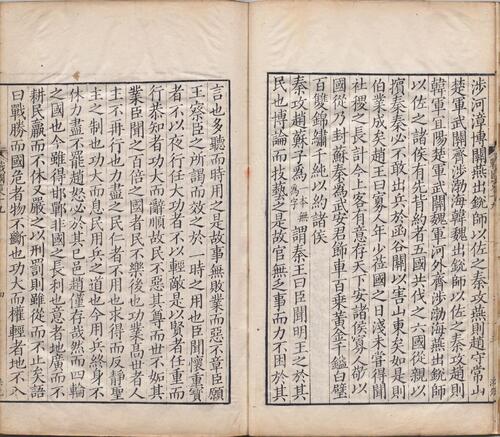 涉河漳博關燕出銳師以佐之秦攻燕則趙守常山
楚軍武關齊涉渤海韓魏出銳師以佐之秦攻趙則
韓軍宜陽楚軍武關魏軍河外齊涉渤海燕出銳師
以佐之諸侯有先背約者五國共伐之六國從親以
擯秦秦必不敢出兵於函谷關以害山東矣如是則
伯業成矣趙王曰寡人年少莅國之日淺未嘗得聞
社稷之長計今上客有意存天下安諸侯寡人敬以
國從乃封蘇秦為武安君飾車百乘黃金千鎰白璧
百雙錦繡千純以約諸侯
秦攻趙蘇子為本無為字謂秦王曰臣聞明王之於其
民也博論而技藝之是故官無乏事而力不困於其
言也多聽而時用之是故事無敗業而惡不章臣願
王察臣之所謁而效之於一時之用也臣聞懷重寶
者不以夜行任大功者不以輕敵是以賢者任重而
行恭知者功大而辭順故民不惡其尊而世不妬其
業臣聞之百倍之國者民不樂後也功業高世者人
主不再行也力盡之民仁者不用也求得而反靜聖
主之制也功大而息民用兵之道也今用兵終身不
休力盡不罷趙怒必於其己邑趙僅存哉然而四輪
之國也今雖得邯鄲非國之長利也意者地廣而不
耕民羸而不休又嚴之以刑罰則雖從而不止矣語
曰戰勝而國危者物不斷也功大而權輕者地不入